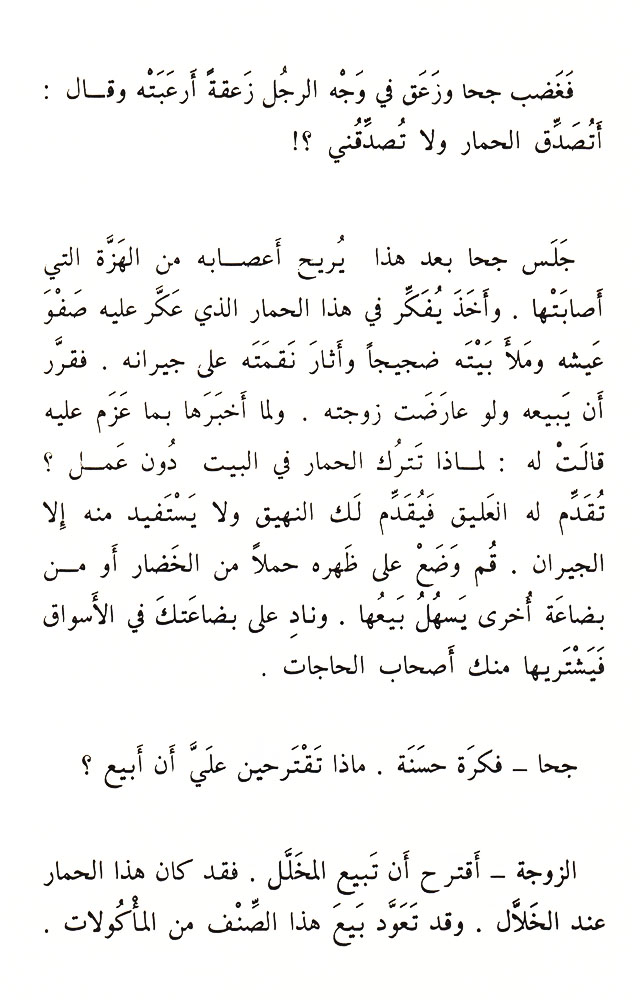 فَغَضب جحا وزَعَق في وَجْه الرجُل زَعقةً أَرعَبَتْه وقـال :
أَتُصَدِّق الحمار ولا تُصدِّقُني ؟!
جَلَس جحا بعد هذا يُريح أَعصـابه من الهَزَّة التي
أَصابَتْها . وأَخَذَ يُفَكِّر في هذا الحمار الذي عَكَّر عليه صَفْوَ
عَيشه ومَلأَ بَيْتَه ضجيجاً وأَثارَ نَقمَتَه على جيرانه . فقرَّر
أَن يَبيعه ولو عارَضَت زوجته . ولما أَخبَرَها بما عَزَم عليه
قالَتْ له : لمـاذا تَترُك الحمار في البيت دُون عَمـل ؟
تُقَدِّم له العَليق فَيُقَدِّم لَك النهيق ولا يَسْتَفيد منه إِلا
الجيران . قُم وَضَعْ على ظَهره حملاً من الخَضار أَو مـن
بضاعَة أُخرى يَسهُلُ بَيعُها . ونادِ على بضاعَتكَ في الأَسواق
فَيَشْتَريها منك أَصحاب الحاجات .
جحا – فكرَة حسَنَة . ماذا تَقْتَرحين علَيَّ أَن أَبيع ؟
الزوجة – أَقترح أَن تَبيع المخَلَّل . فقد كان هذا الحمار
عند الخَلاَّل . وقد تَعَوَّد بَيعَ هذا الصِّنْف من المأْكُولات .